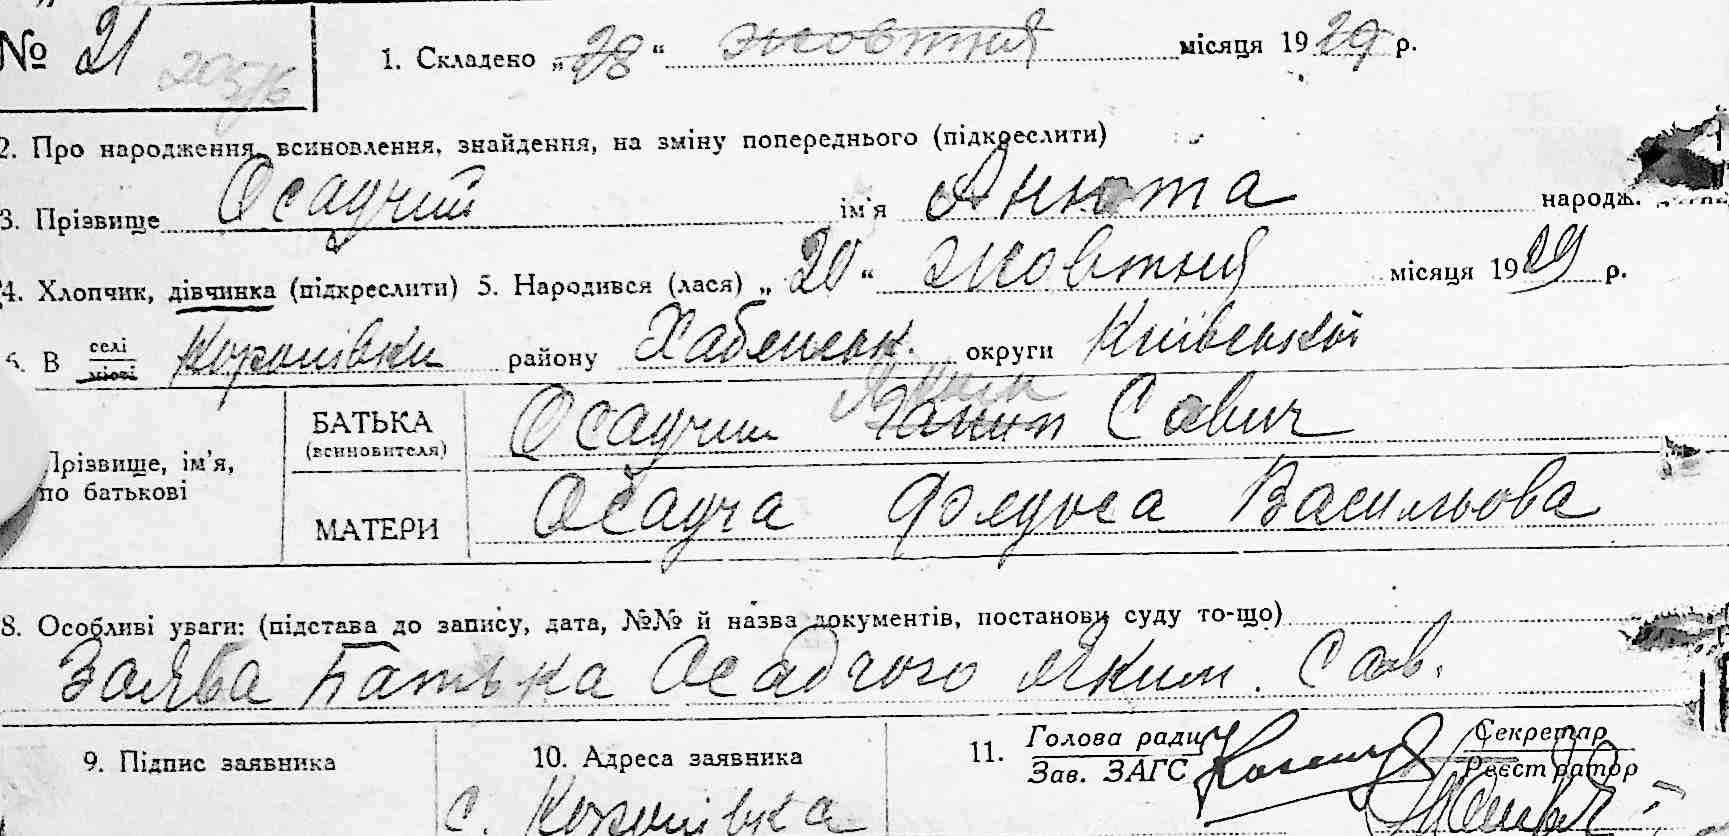 № 21 1. Складено „28“ жовтня місяця 1929 р.
2. Про народження, всиновлення, знайдення, на зміну попереднього (підкреслити)
3. Прізвище Осадчий ім'я Анюта народж.
4. Хлопчик, дівчинка (підкреслити) 5. Народився (лася) „20“ жовтня місяця 1929 р.
6. В селі місті району Хабенськ. округи Київської
Прізвище, ім'я, по батькові
БАТЬКА (всиновителя) Осадчий Яким Савич
МАТЕРИ Осадча Федоса Васильова
8. Особливі уваги: (підстава до запису, дата, №№ й назва документів, постанови суду то-що)
Заява Батька Осадчого Яким. Сав.
9. Підпис заявника 10. Адреса заявника 11. Голова ради Секретар
Зав. ЗАГС Реєстратор
с.